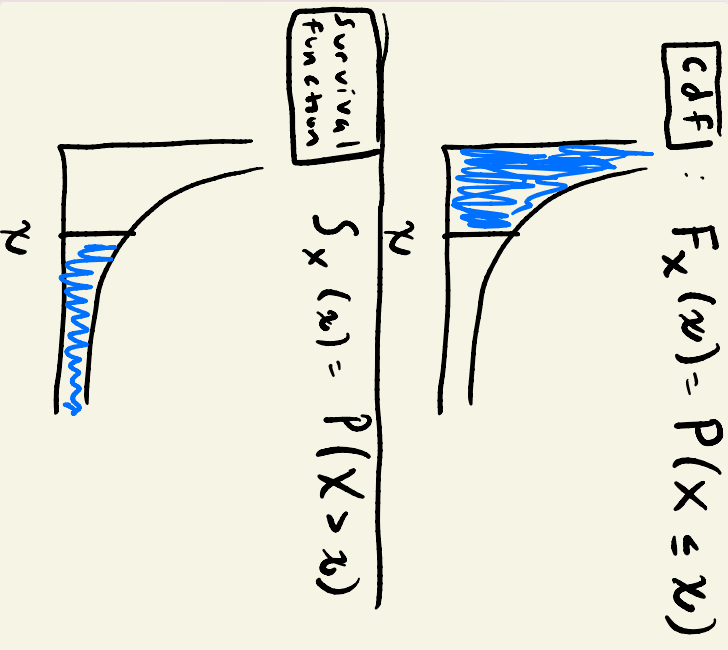 cdf : Fx(x) = P(X ≤ x)
x
Survival
function
Sx(x) = P(X > x)
x